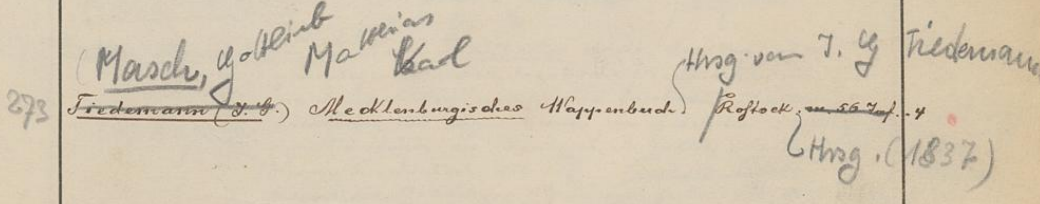 (Masch, Gottlieb Matthias Karl
Hrsg. von J. G Tiedemann
273 Tiedemann (J. G.) Mecklenburgisches Wappenbuch. Rostock, m. 56 Taf. 4
Hrsg. (1837)